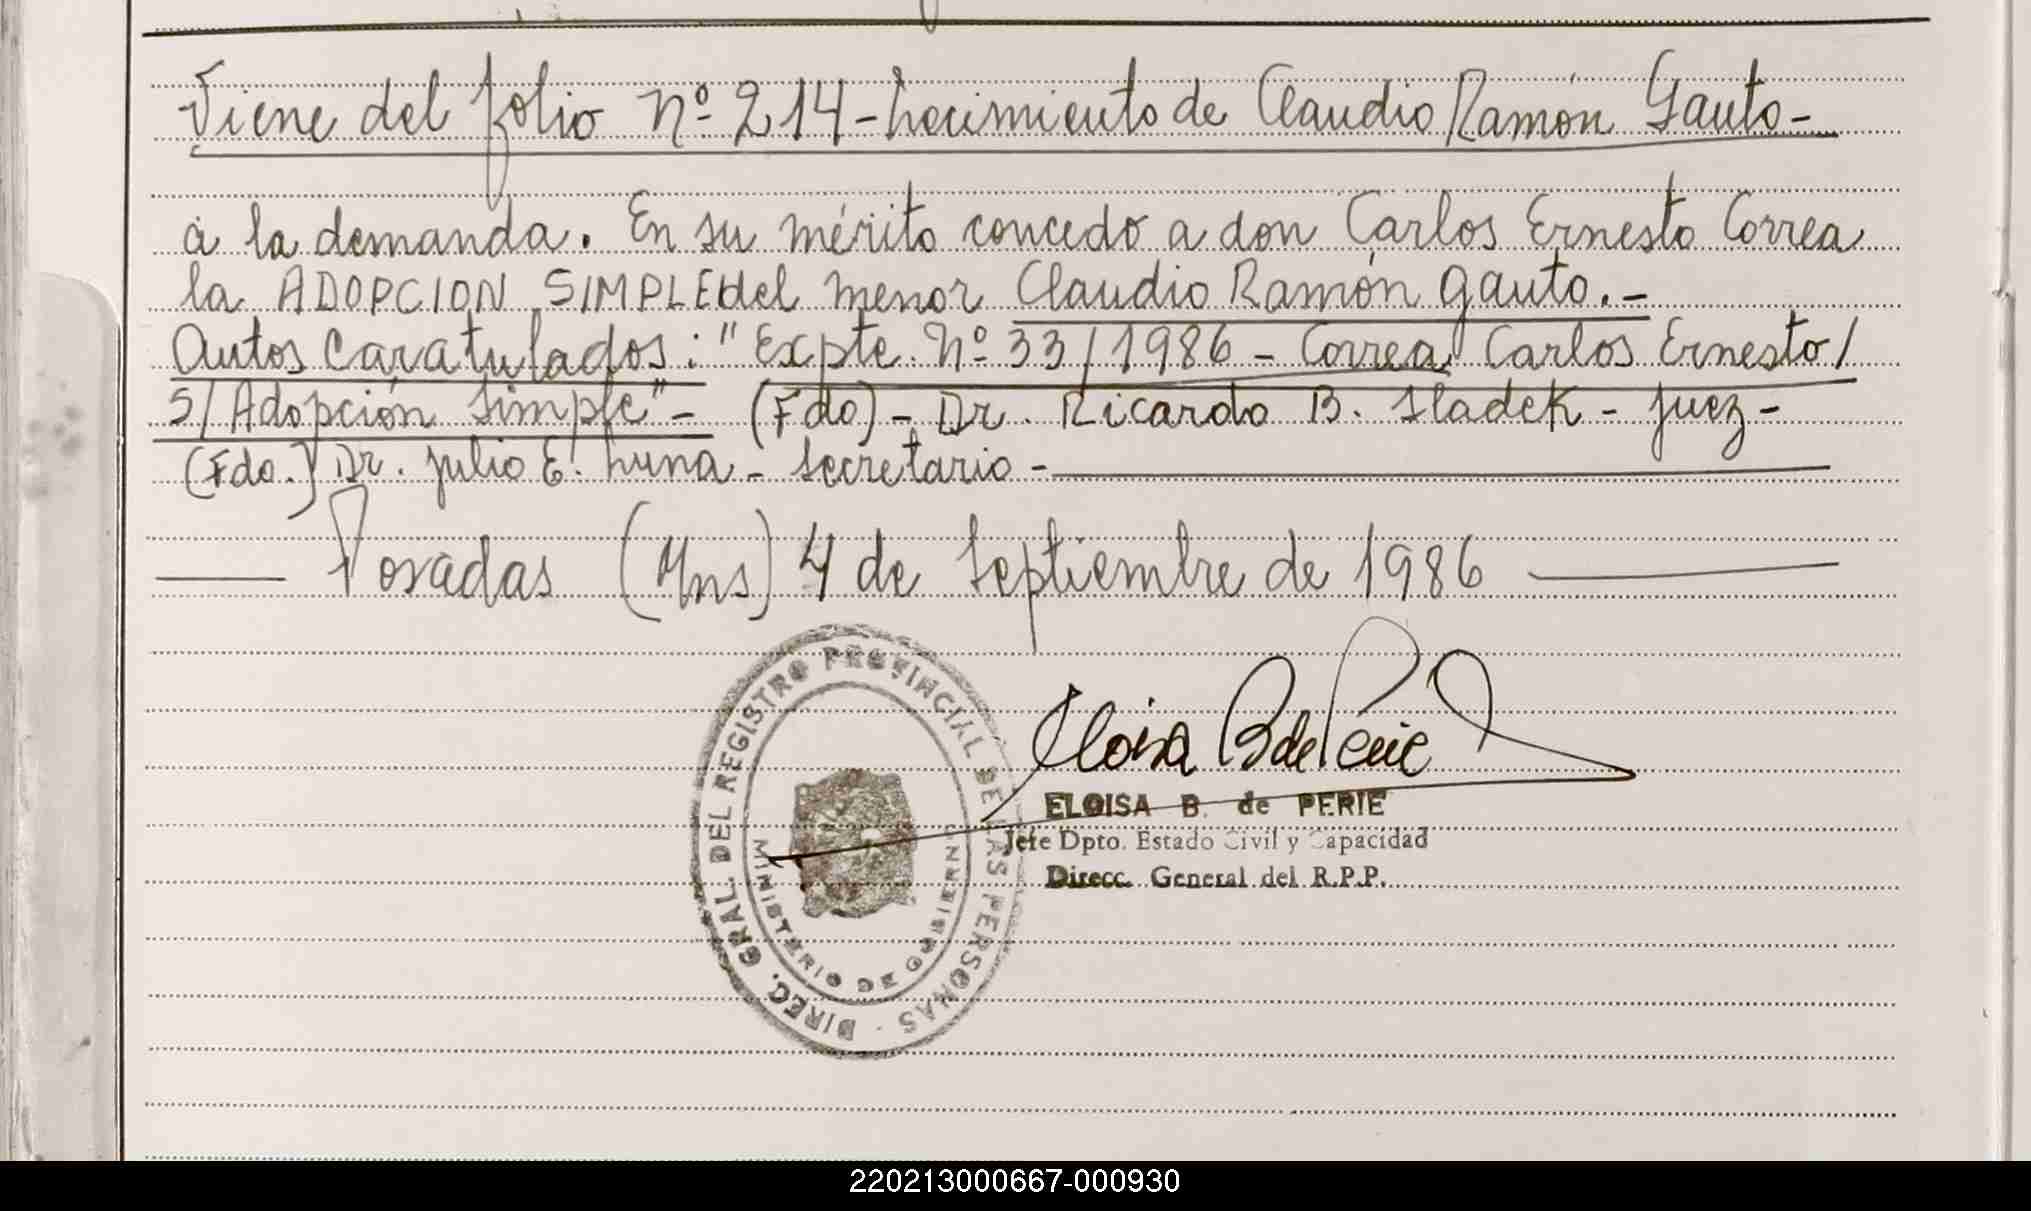 Viene del folio Nº 214 - Nacimiento de Claudio Ramón Gauto -
a la demanda. En su mérito concedo a don Carlos Ernesto Correa
la ADOPCION SIMPLE del menor Claudio Ramón Gauto. -
Autos Caratulados: "Expte. Nº 33/1986 - Correa Carlos Ernesto/
S/Adopción Simple" - (Fdo) - Dr. Ricardo B. Sladek - Juez -
(Fdo.) Dr. Julio E. Luna - Secretario -
Posadas (Mns) 4 de Septiembre de 1986
DIREC. GRAL. DEL REGISTRO PROVINCIAL DE LAS PERSONAS
MINISTERIO DE GOBIERNO
Eloisa B de Perie
ELOISA B. de PERIE
Jefe Dpto. Estado Civil y Capacidad
Direcc. General del R.P.P.
220213000667-000930